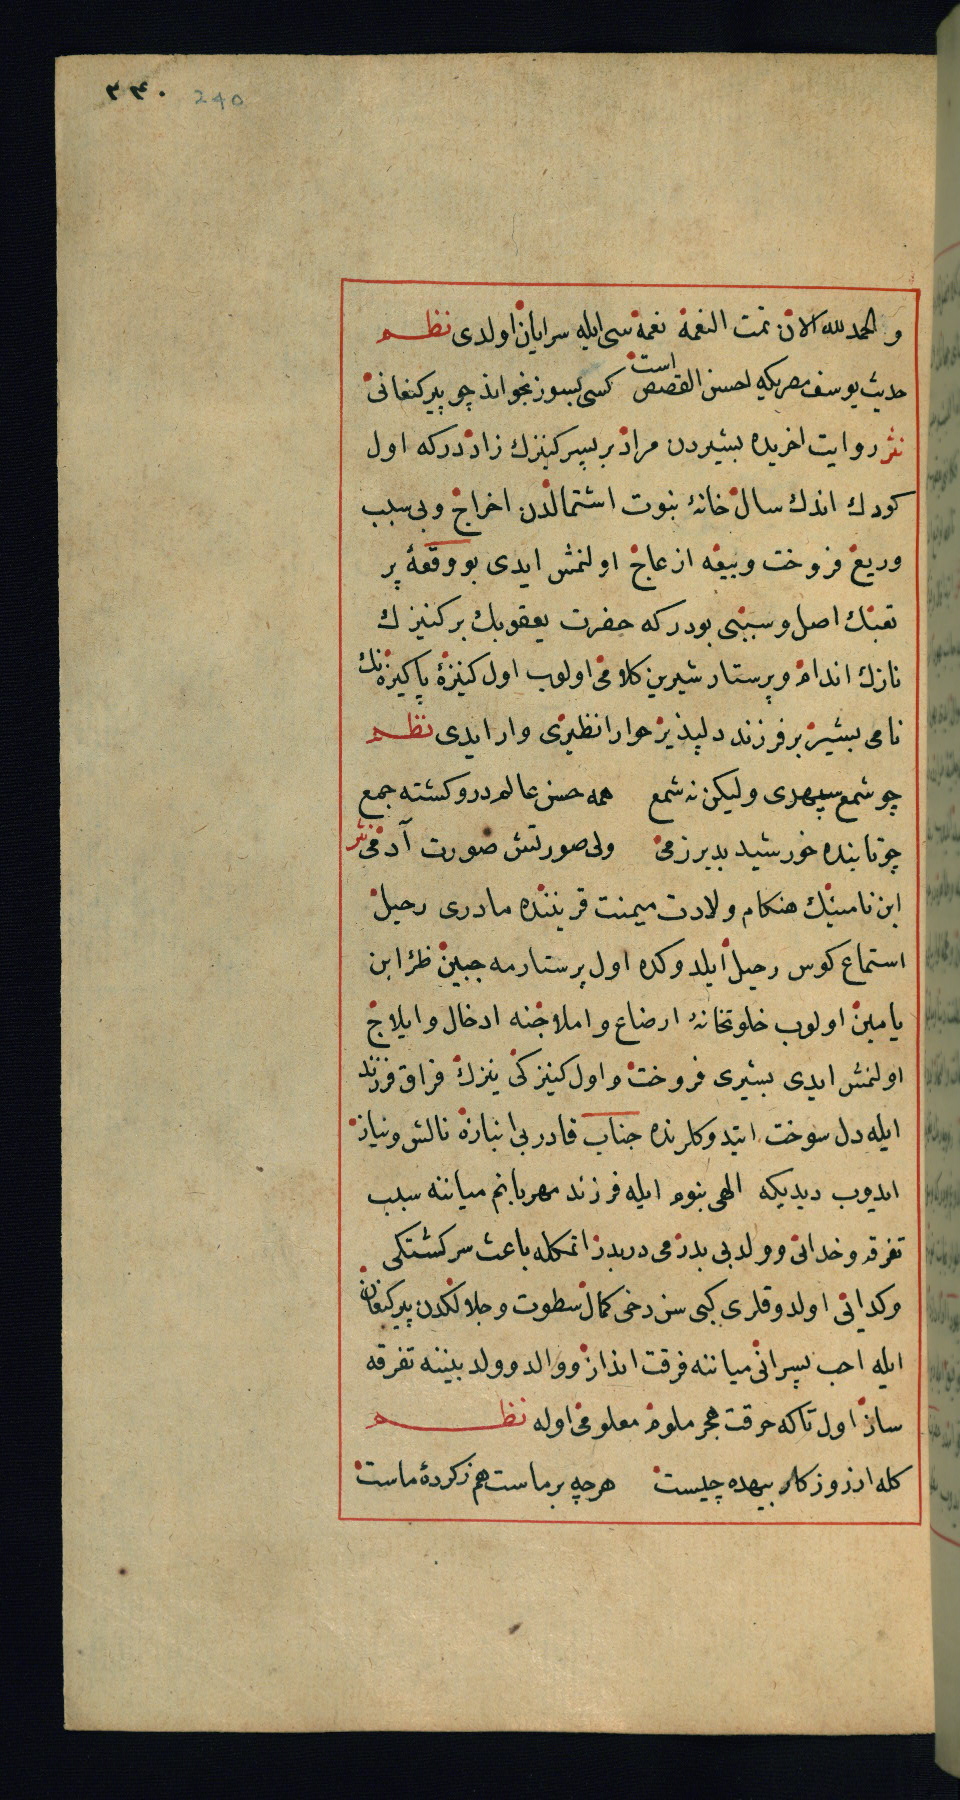 ٢٤٠ 240
و الحمد لله الآن تمت النعمة نغمه سی ایله سرایان اولدی نظم
حدیث یوسف مصریکه احسن القصص است کسی بسوز نخواند چو پیر کنعانی
نثر روایت اخریده بشیردن مراد بر پسر کنیزك زاد در که اول
کودك اندك سال خانهٔ بنوت اشتمالدن اخراج و بی سبب
وریغ فروخت و بیعه ازعاج اولنمش ایدی بو وقعهٔ پر
تعبنك اصل و سببی بودر که حضرت یعقوبك بر کنیزك
نازك اندام و پرستار شیرین کلامی اولوب اول کنیزهٔ پاکیزه نك
نامی بشیر بر فرزند دلپذیر حورا نظیری وار ایدی نظم
چو شمع سپهدی ولیکن نه شمع همه حسن عالم در و کشته جمع
چو تابنده خورشید بدیر زمی ولی صورتش صورت آدمی نثر
ابن نامینك هنکام ولادت میمنت قریننده مادری رحیل
استماع کوس رحیل ایلدوکده اول پرستار مه جبین ظئر ابن
یامین اولوب خلوتخانهٔ ارضاع و املاجنه ادخال و ایلاج
اولنمش ایدی بشیری فروخت و اول کنیزکی ینزك فراق فرزند
ایله دل سوخت ایتدوکلرنده جناب قادر بی انبازه نالش و نیاز
ایدوب دیدیکه الهی بنوم ایله فرزند مهربانم میاننه سبب
تفرقه و خدانی و ولد بی بدرمی دربدر اتمکله باعث سرکشتکی
وکدانی اولدوقلری کبی سن دخی کمال سطوت و جلالکدن پیر کنعان
ایله احب پسرانی میاننه فرقت انداز و والد و ولد بیننه تفرقه
ساز اول تاکه حرقت هجر ملوم معلومی اوله نظم
کله از روزکار بیهده چیست هرچه بر ماست هم ز کردهٔ ماست